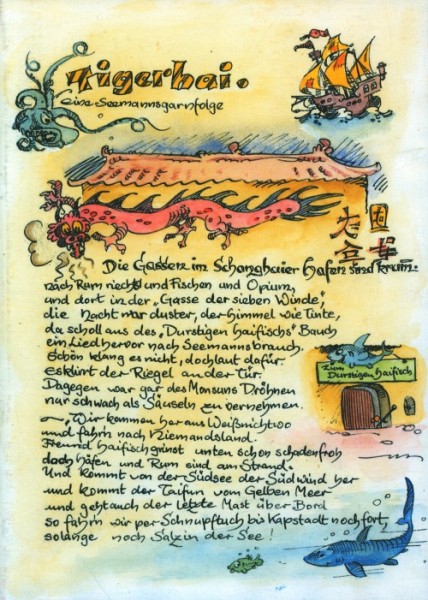 Tigerhai.
eine Seemannsgarnfolge
Die Gassen im Schanghaier Hafen sind krum:
nach Rum riecht's und Fischen und Opium,
und dort in der „Gasse der sieben Winde",
die Nacht war duster, der Himmel wie Tinte,
da scholl aus des „Durstigen Haifischs" Bauch
ein Lied hervor nach Seemannsbrauch.
Schön klang es nicht, doch laut dafür
es klirrt der Riegel an der Tür.
Dagegen war gar des Monsuns Dröhnen
nur schwach als Säuseln zu vernehmen.
„Wir kommen her aus Weißnichtwo
und fahrn nach Niemandsland.
Freund Haifisch grinst unten schon schadenfroh
doch Häfen und Rum sind am Strand.
Und kommt von der Südsee der Südwind her
und kommt der Taifun vom Gelben Meer
und geht auch der letzte Mast über Bord
so fahrn wir per Schnupftuch bis Kapstadt noch fort,
solange noch Salz in der See!
Zum
Durstigen Haifisch